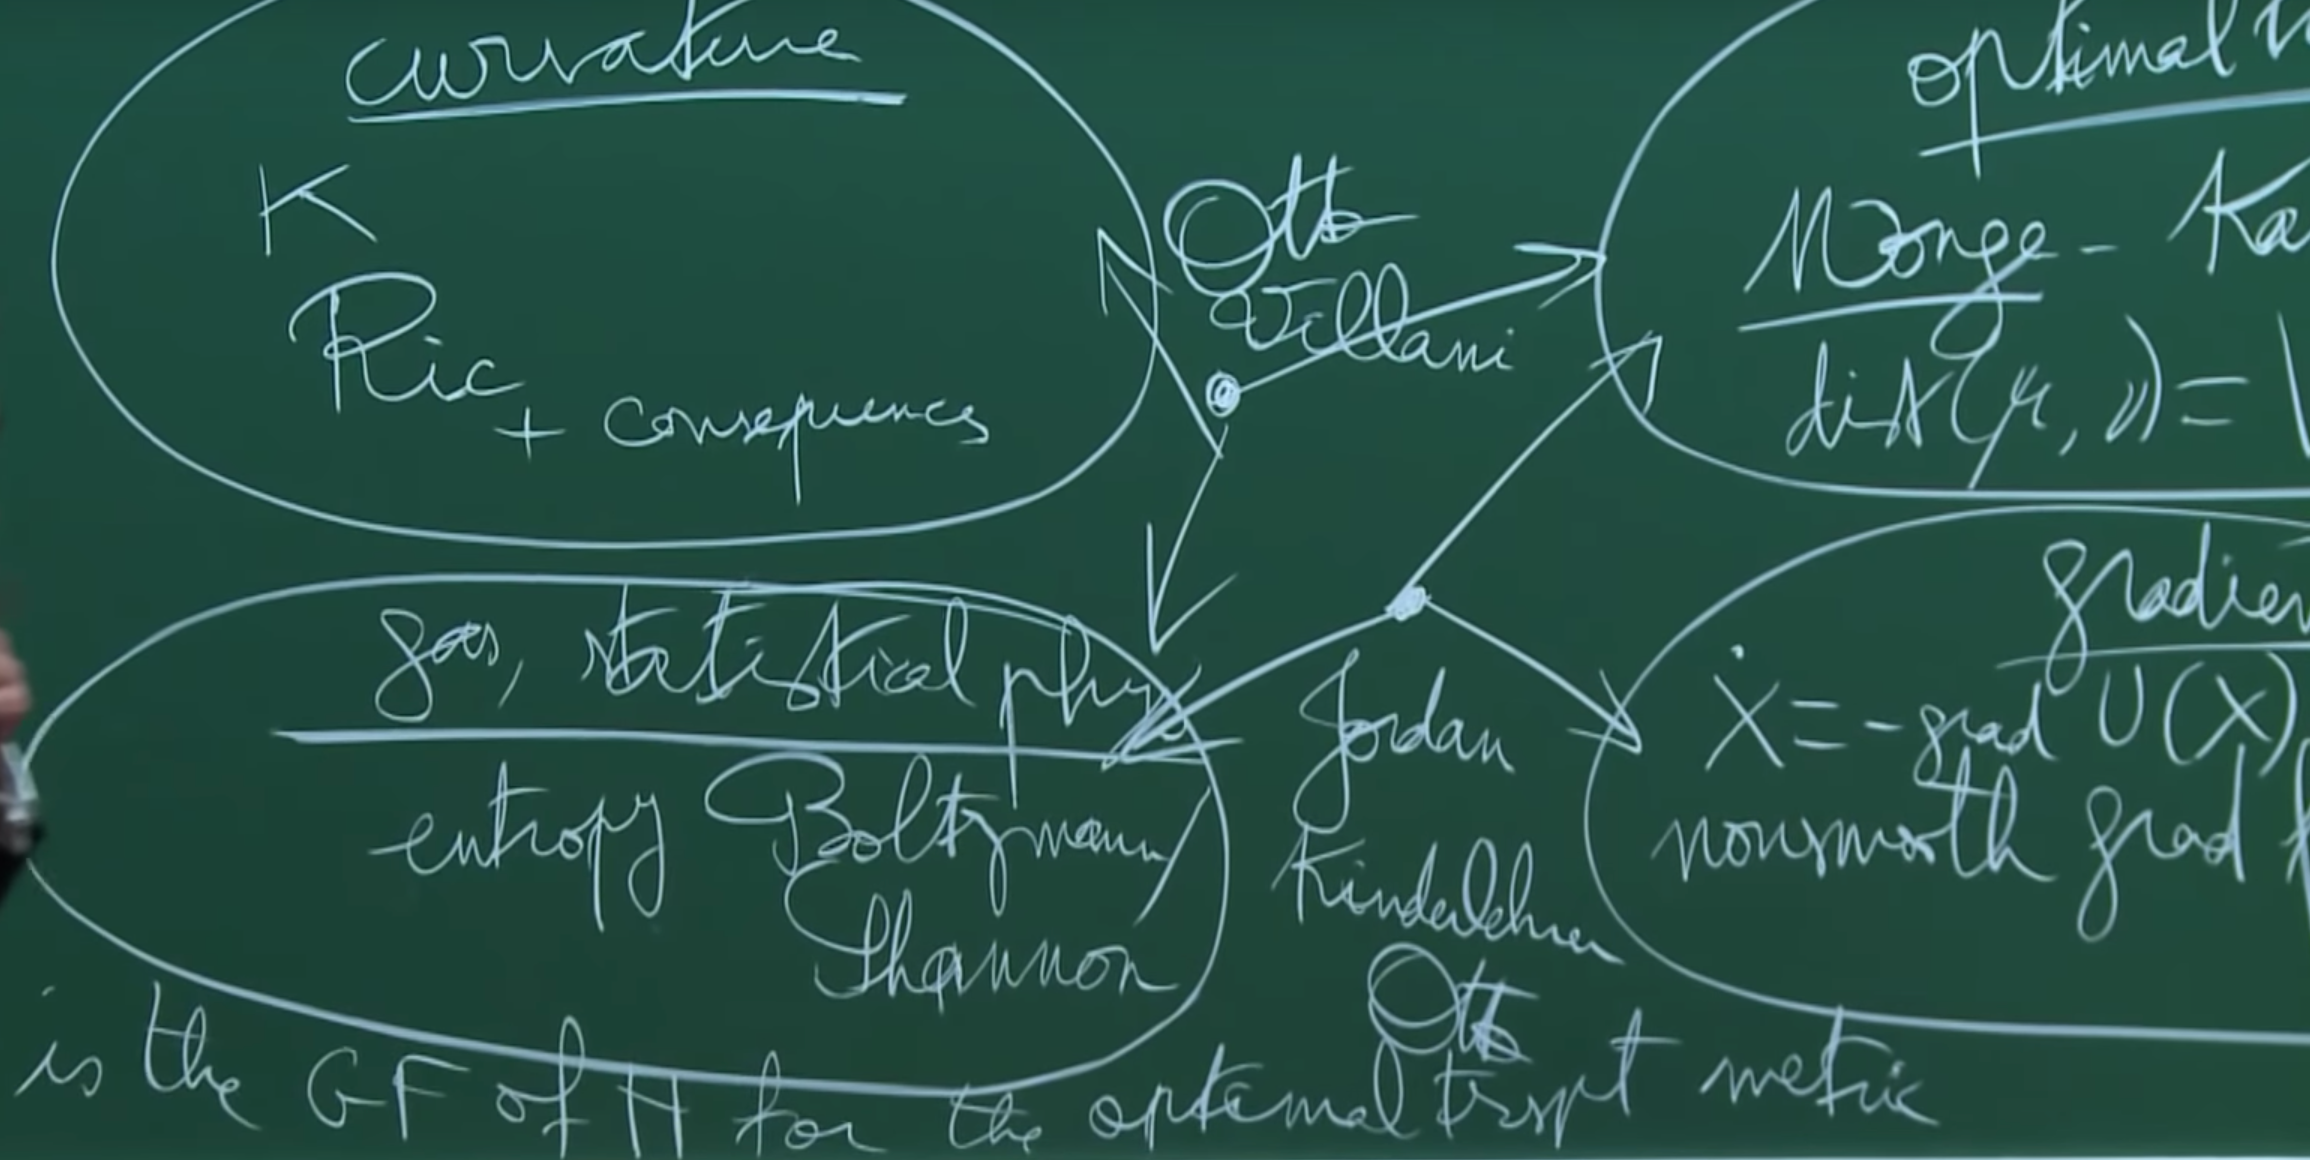 curvature
K
Ric
+ consequences
Otto
Villani
optimal
Monge - Ka
dist(μ, ν) = √
gas, statistical phys
entropy Boltzmann
Shannon
Jordan
Kinderlehrer
Otto
gradien
Ẋ = - grad U(X)
nonsmooth grad f
is the GF of H for the optimal trspt metric